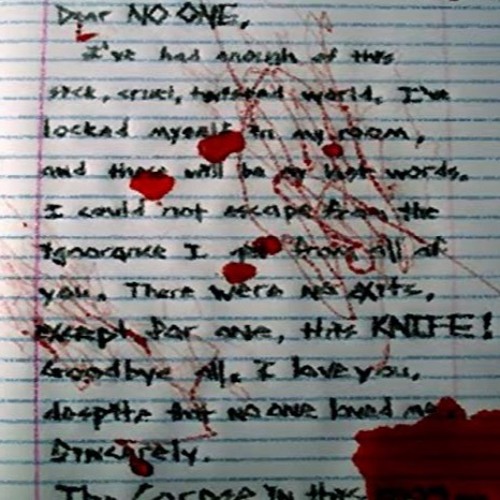 Dear NO ONE,
I've had enough of this
sick, cruel, twisted world. I've
locked myself in my room,
and these will be my last words.
I could not escape from the
ignorance I get from all of
you. There were no exits,
except for one, this KNIFE!
Goodbye all. I love you,
despite that no one loved me.
Sincerely.
The Corpse in this